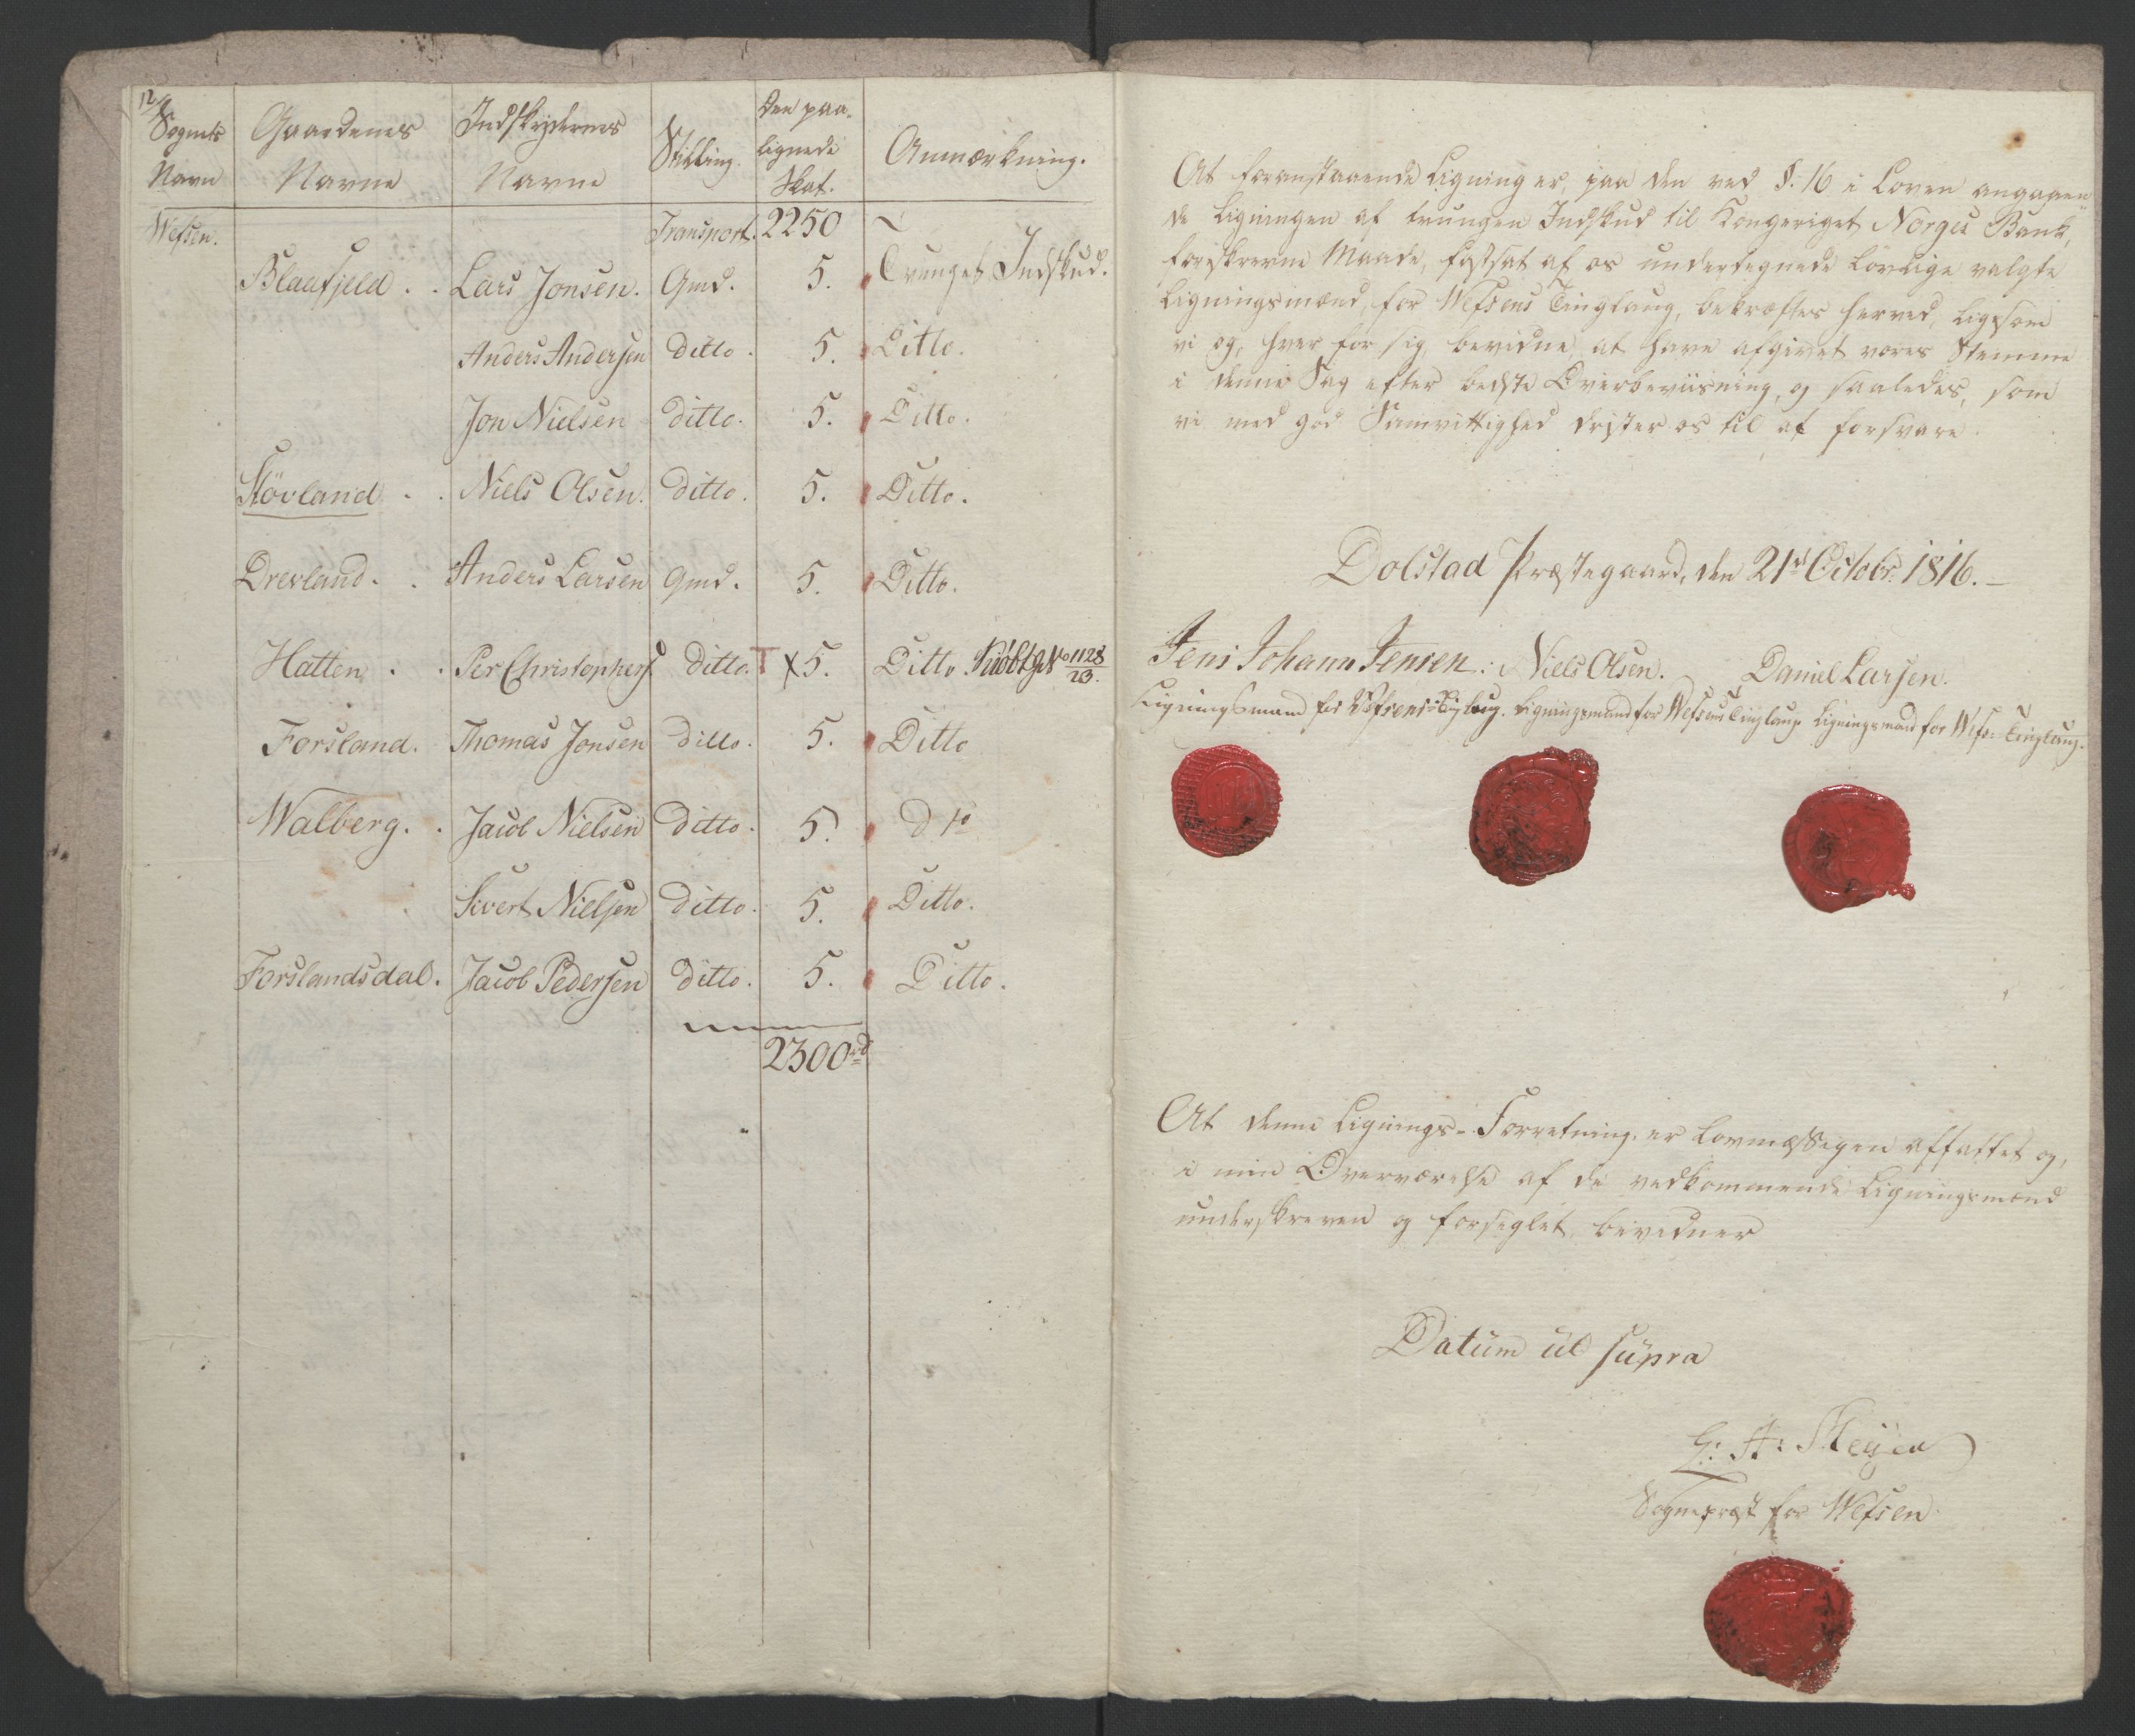 12
Sognets Navn | Gaardenes Navne | Indskydernes Navne | Stilling. | Den paalignede Skat. | Anmærkning.
Wefsen. | | | Transport. | 2250 |
Blaafjeld . . | Lars Jonsen. | Gmd. | 5. | Tvunget Indskud.
Anders Andersen | ditto. | 5. | Ditto.
Jon Nielsen | ditto. | 5. | Ditto.
Stövland . . | Niels Olsen. | ditto. | 5. | Ditto.
Drevland . . | Anders Larsen | Gmd. | 5. | Ditto.
Hatten . . | Per Christophers | ditto. | x 5. | Ditto. No 1128/23.
Forsland. | Thomas Jonsen | ditto. | 5. | Ditto
Walberg. . | Jacob Nielsen | ditto. | 5. | Dto
Sivert Nielsen | ditto. | 5. | Ditto.
Forslandsdal. | Jacob Pedersen | ditto. | 5. | Ditto.
2300rd
At foranstaaende Ligning er, paa den ved §. 16 i Loven angaaen
de Ligningen af tvungen Indskud til Kongeriget Norges Bank,
foreskrevne Maade, fastsat af os undertegnede lovlige valgte
Ligningsmænd, for Wefsens Tinglaug, bekræftes herved, ligesom
vi og, hver for sig, bevidne at have afgivet vores Stemme
i denne Sag efter bedste Overbeviisning, og saaledes, som
vi med god Samvittighed drister os til at forsvare.
Dolstad Præstegaard, den 21de Octobr: 1816. –
Jens Johann Jensen. Niels Olsen. Daniel Larsen.
Ligningsmand for Wefsens Tinglaug. Ligningsmand for Wefsens Tinglaug. Ligningsmand for Wefs: Tinglaug.
At denne Lignings-Forretning er lovmæssigen affattet og,
i min Overværelse af de vedkommende Ligningsmænd
underskreven og forseglet, bevidner
Datum ut supra
Sognepræst for Wefsen.